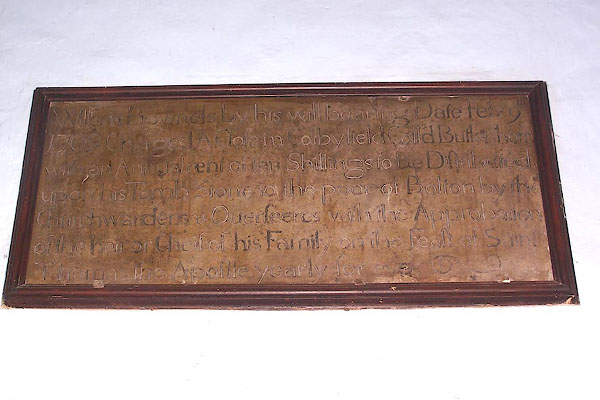 by his will bearing Date Feby 9
Charged A in Corbyfield
with an Annual rent of ten Shillings to be Distributed
upon his Tomb Stone to the poor of Bolton by the
Churchwardens & Overseers with the Approbation
of the Heir or Chief of his Family on the Feast of Saint
the Apostle yearly for ever